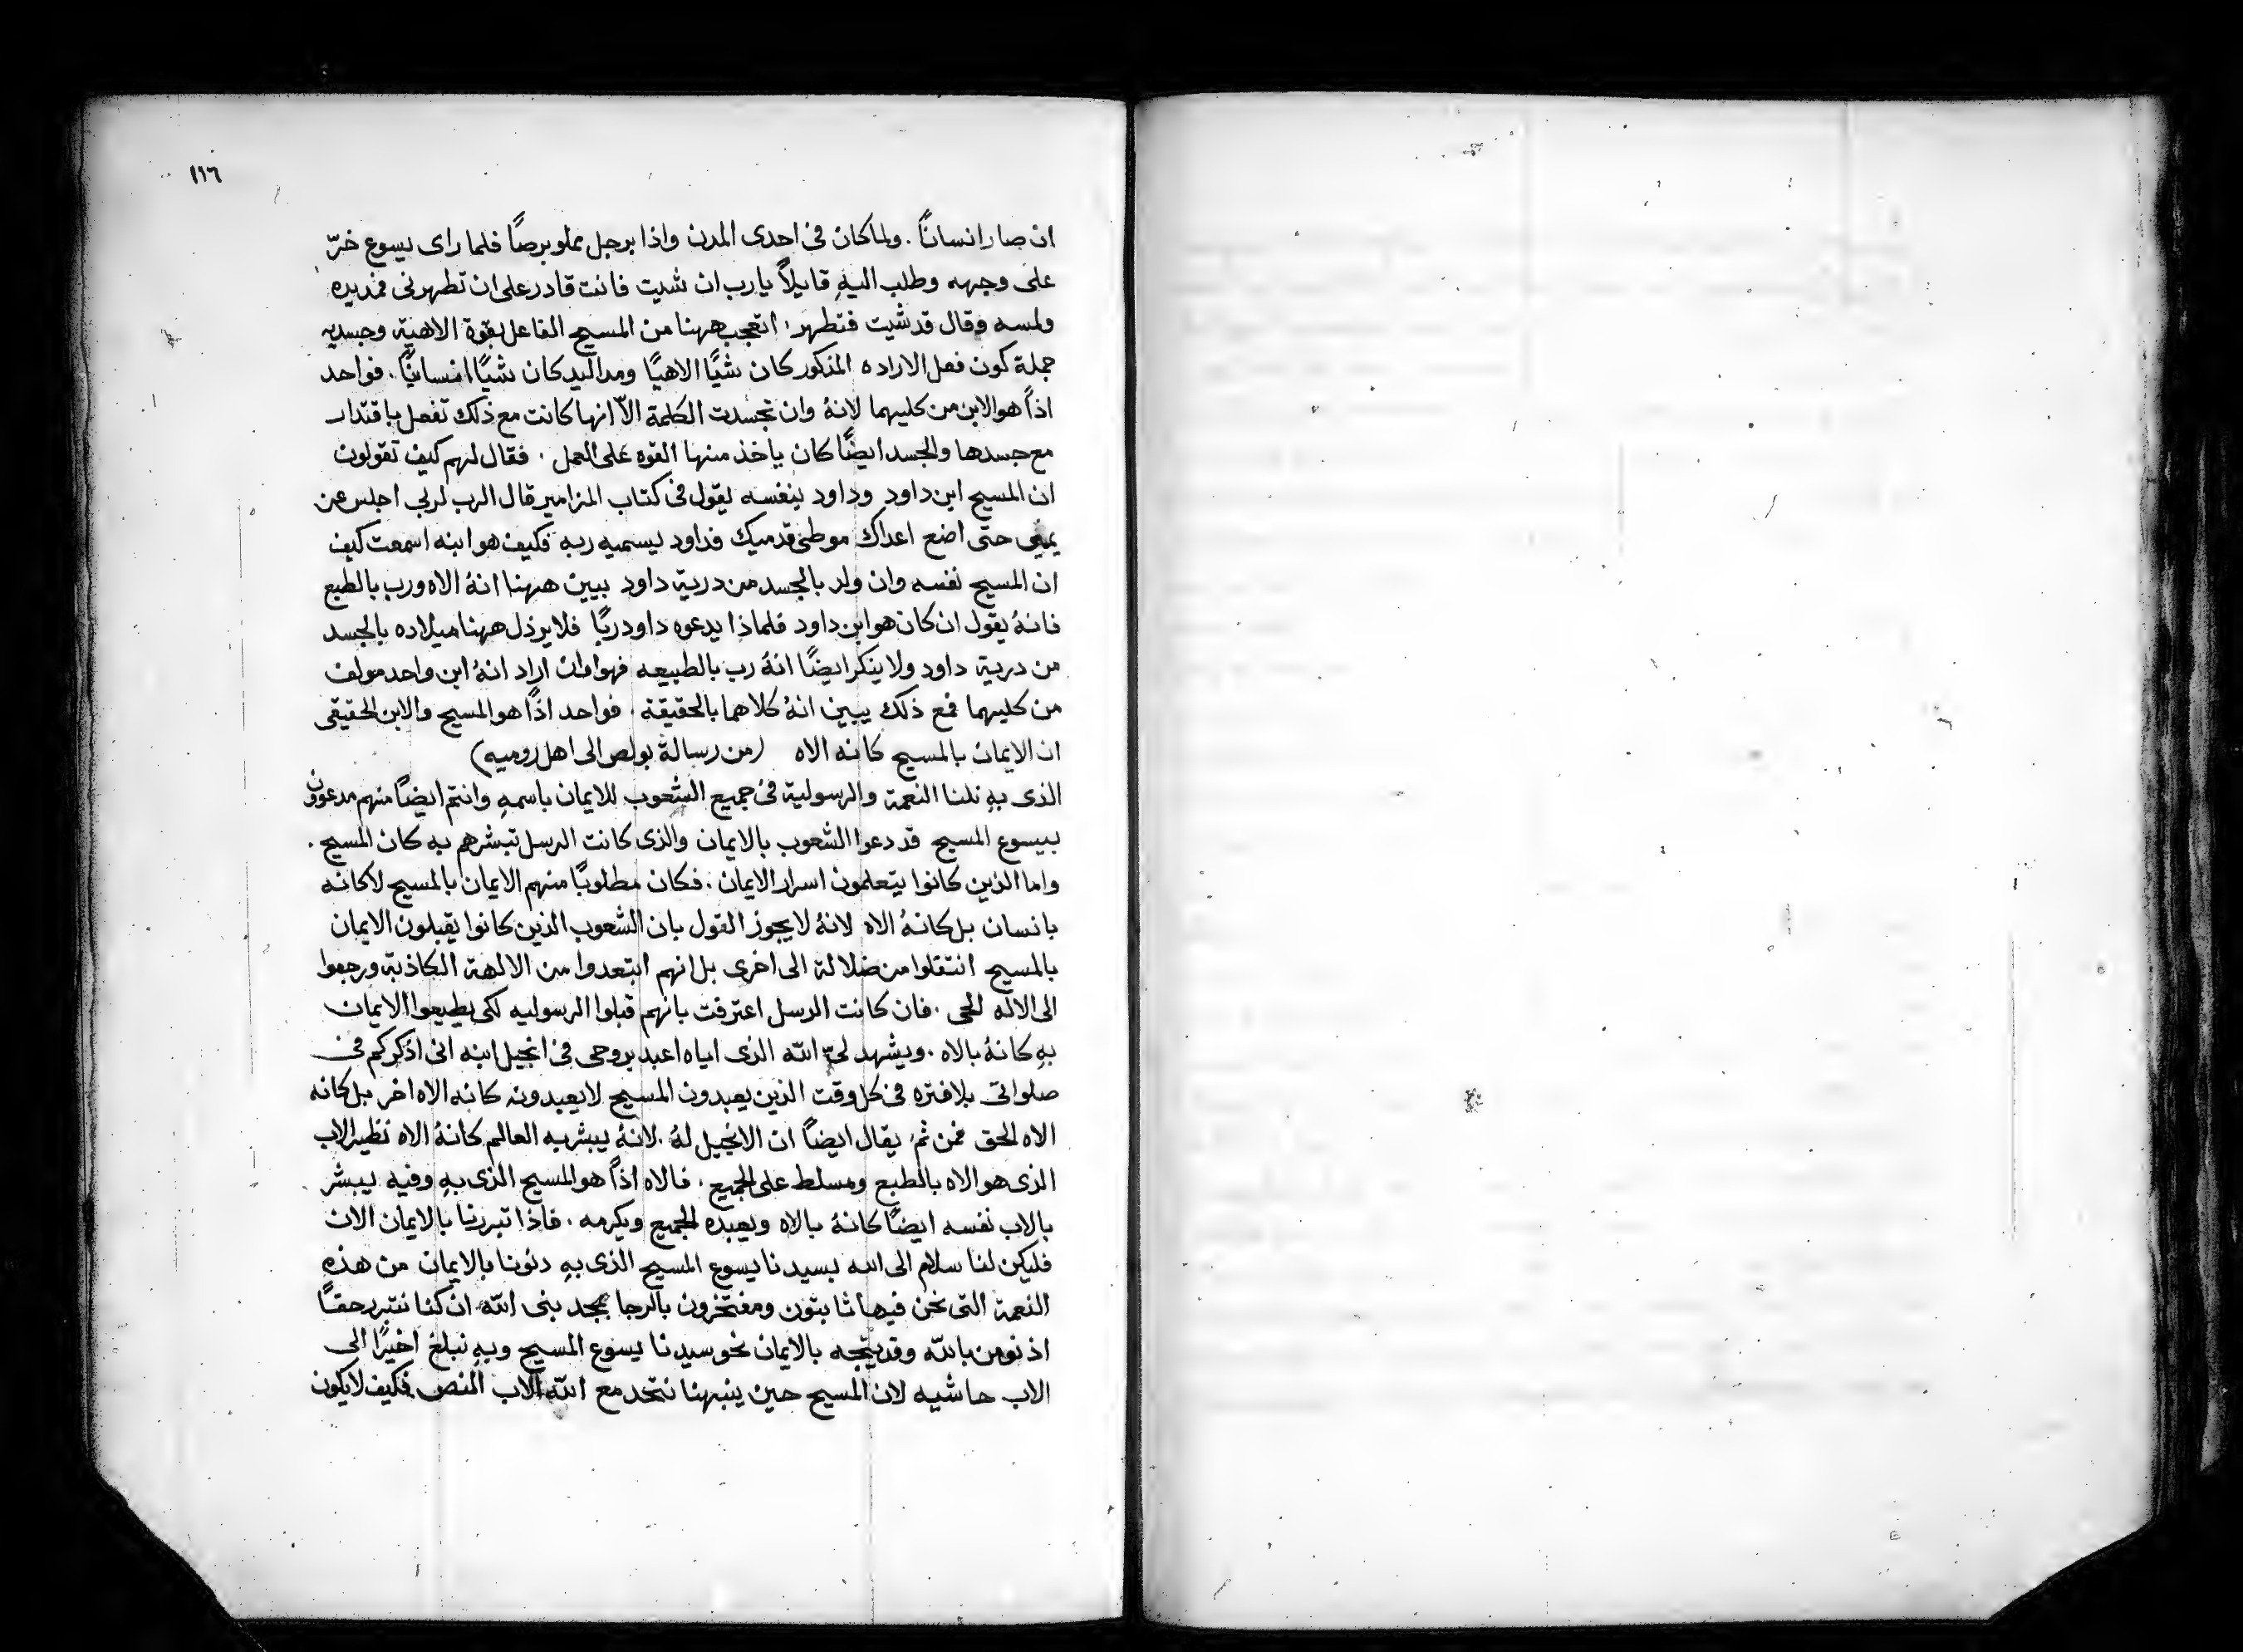 ١١٦
ان صار انسانًا . ولما كان في احدى المدن واذا برجل مملو برصًا فلما راى يسوع خرّ
على وجهه وطلب اليهِ قايلاً يارب ان شيت فانت قادر على ان تطهرني فمد يده
ولمسه وقال قد شيت فتطهر . اتعجب ههنا من المسيح الفاعل بقوة الاهية وجسديه
جملة كون فعل الاراده المذكور كان شيًا الاهيًا ومد اليد كان شيًا انسانيًا . فواحد
اذاً هو الابن من كليهما لانهُ وان تجسدت الكلمة الاّ انها كانت مع ذلك تفعل باقتدار
مع جسدها والجسد ايضًا كان ياخذ منها القوه على العمل . فقال لهم كيف تقولون
ان المسيح ابن داود وداود بنفسه يقول في كتاب المزامير قال الرب لربي اجلس عن
يميني حتى اضع اعداك موطئ قدميك فداود يسميه ربه فكيف هو ابنه اسمعت كيف
ان المسيح نفسه وان ولد بالجسد من درية داود يبين ههنا انهُ الاه ورب بالطبع
فانهُ يقول ان كان هو ابن داود فلماذا يدعوه داود ربًا فلا يرذل ههنا ميلاده بالجسد
من درية داود ولا ينكر ايضًا انهُ رب بالطبيعه فهو اراد انهُ ابن واحد مولف
من كليهما فمع ذلك يبين انهُ كلاهما بالحقيقة . فواحد اذًا هو المسيح والابن الحقيقي
ان الايمان بالمسيح كانه الاه (من رسالة بولص الى اهل روميه)
الذى بهِ نلنا النعمة والرسولية في جميع الشعوب للايمان باسمهِ وانتم ايضًا منهم مدعوون
بيسوع المسيح قد دعوا الشعوب بالايمان والذى كانت الرسل تبشرهم به كان المسيح .
واما الذين كانوا يتعلمون اسرار الايمان . فكان مطلوبًا منهم الايمان بالمسيح لا كانه
بانسان بل كانهُ الاه لانهُ لا يجوز القول بان الشعوب الذين كانوا يقبلون الايمان
بالمسيح انتقلوا من ضلالة الى اخرى بل انهم ابتعدوا من الالهة الكاذبة ورجعوا
الى الاله الحى . فان كانت الرسل اعترفت بانهم قبلوا الرسوليه لكى يطيعوا الايمان
بهِ كانهُ بالاه . ويشهد لي الله الذى اياه اعبد بروحى في انجيل ابنه انى اذكركم في
صلواتى بلا فتره في كل وقت الذين يعبدون المسيح لا يعبدونه كانه الاه اخر بل كانه
الاه الحق فمن ثم يقال ايضاً ان الانجيل لهُ . لانهُ يبشر به العالم كانهُ الاه نظير الاب
الذى هو الاه بالطبع ومسلط على الجميع . فالاه اذاً هو المسيح الذى بهِ وفيه يبشر
بالاب نفسه ايضًا كانهُ بالاه ويعبده الجميع ويكرمه . فاذا تبررنا بالايمان الان
فليكن لنا سلام الى الله بسيدنا يسوع المسيح الذى بهِ دنونا بالايمان من هذه
النعمة التى نحن فيها ثابتون ومفتخرون بالرجا بمجد بنى الله ان كنا نتبرر حقًا
اذ نومن بالله وقد يتجه بالايمان نحو سيدنا يسوع المسيح وبهِ نبلغ اخيرًا الى
الاب حاشيه لان المسيح حين ينبهنا نتحد مع الله الاب النص فكيف لا يكون